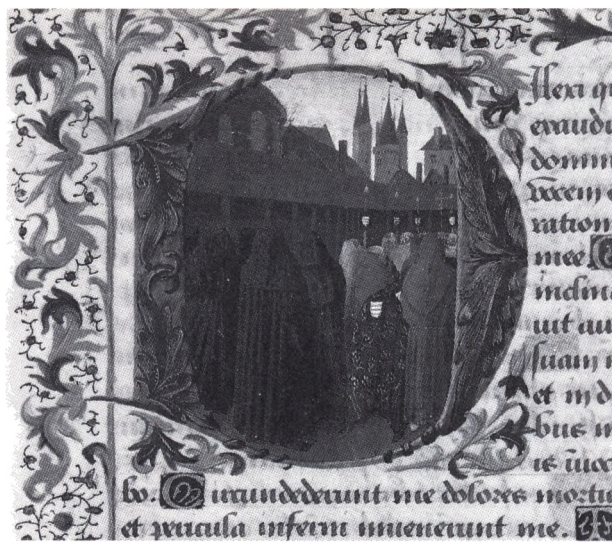 Dilexi qu
exaudi
domin
vocem
ration
mee
inclina
uit au
suam m
et in d
bus m
is inuoca
bo. Circumdederunt me dolores mortis
et pericula inferni inuenerunt me.